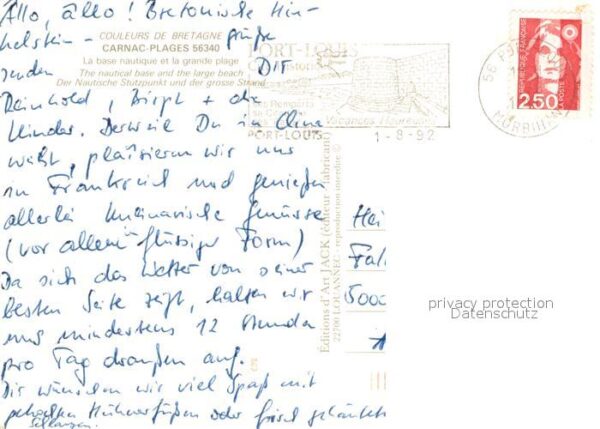 Allo, allo! Bretonische Hin-
kelstein - grüße
COULEURS DE BRETAGNE
CARNAC-PLAGES 56340
La base nautique et la grande plage
The nautical base and the large beach
Der Nautische Stutzpunkt und der grosse Strand
senden DIR
Reinhold, Birgit + die
Kinder. Derweil Du in China
weilst, pläsieren wir uns
in Frankreich und genießen
allerlei kulinarische Genüsse
(vor allem flüssiger Form)
Da sich das Wetter von seiner
besten Seite zeigt, halten wir
uns mindestens 12 Stunden
pro Tag draußen auf.
Dir wünschen wir viel Spaß mit
gehackten Hühnerfüßen oder frisch
Schlangen.
PORT-LOUIS
Ses Remparts
Vacances Heureuses
PORT-LOUIS
1-8-92
56
MORBIHAN
REPUBLIQUE FRANÇAISE
2,50
LA POSTE
Editions d'Art JACK (éditeur - fabricant)
22700 LOUANNEC - reproduction interdite ©
Hei
Fal
5000
privacy protection
Datenschutz